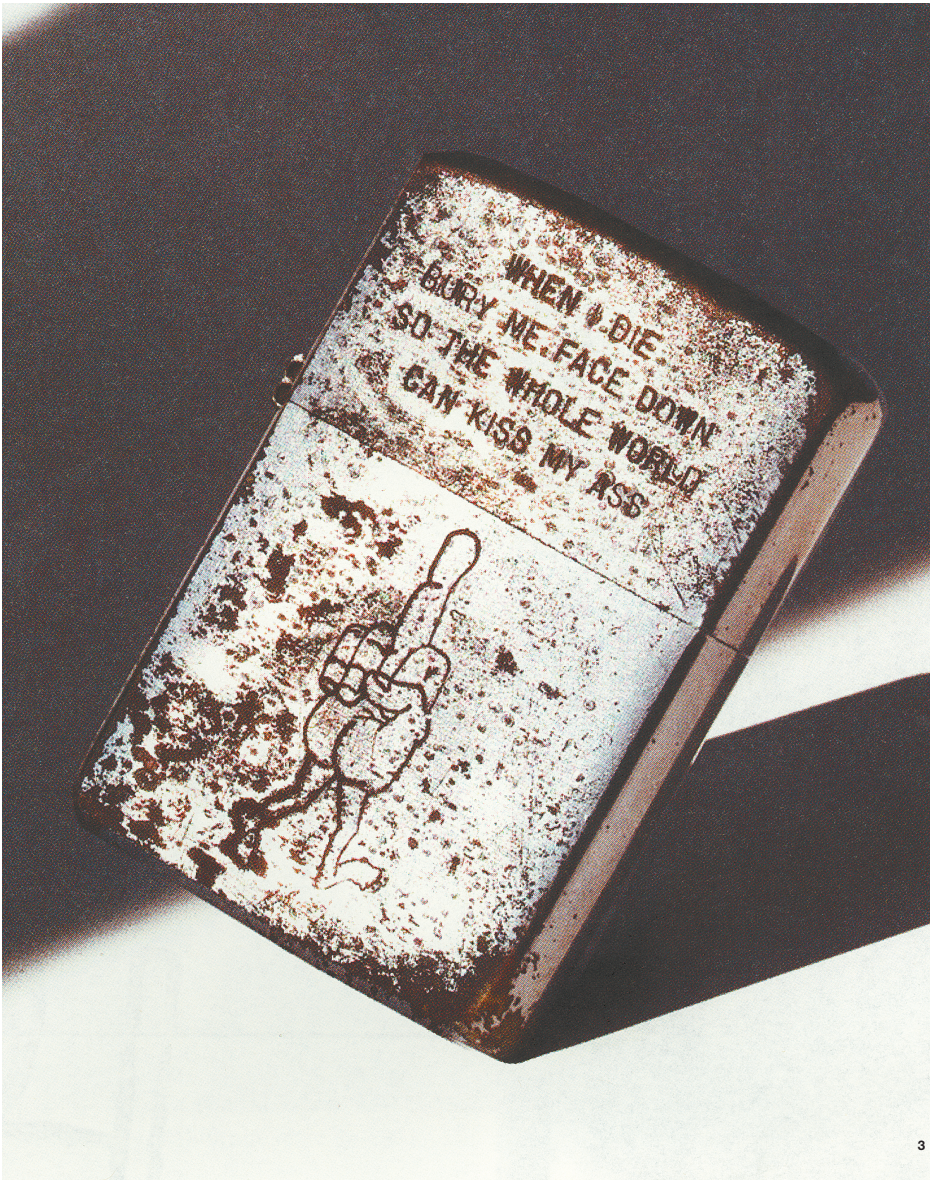 WHEN I DIE
BURY ME FACE DOWN
SO THE WHOLE WORLD
CAN KISS MY ASS
3